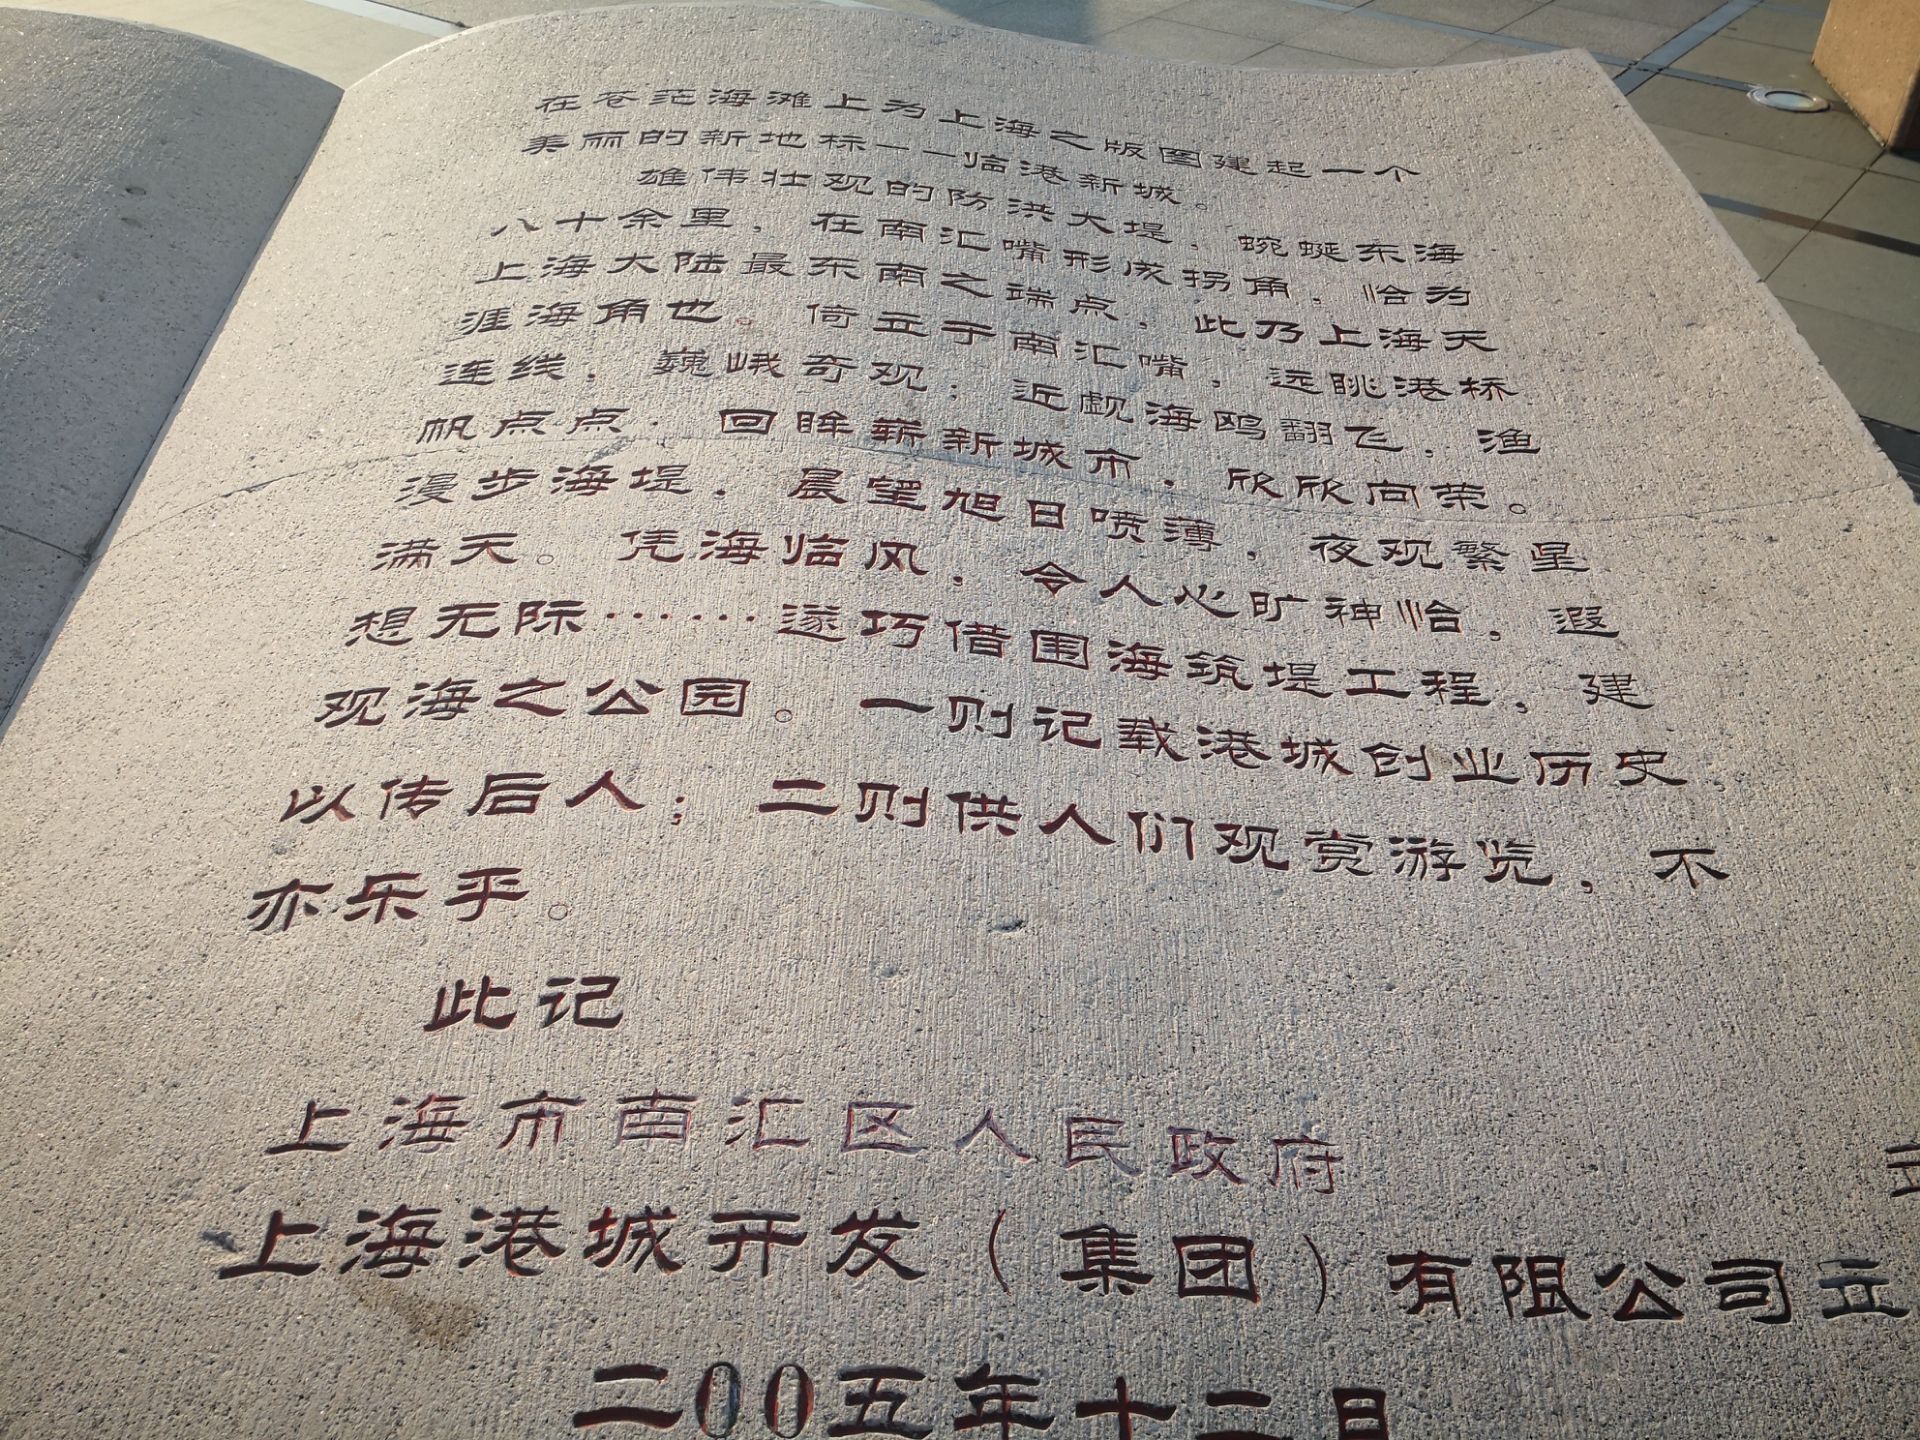 在苍茫海滩上为上海之版图建起一个
美丽的新地标——临港新城。
雄伟壮观的防洪大堤，蜿蜒东海
八十余里，在南汇嘴形成拐角，恰为
上海大陆最东南之端点，此乃上海天
涯海角也。倚立于南汇嘴，远眺港桥
连线，巍峨奇观；近觑海鸥翻飞，渔
帆点点。回眸崭新城市，欣欣向荣。
漫步海堤，晨望旭日喷薄，夜观繁星
满天。凭海临风，令人心旷神怡，遐
想无际……遂巧借围海筑堤工程，建
观海之公园。一则记载港城创业历史
以传后人；二则供人们观赏游览，不
亦乐乎。
此记
上海市南汇区人民政府
上海港城开发（集团）有限公司立
二00五年十二月